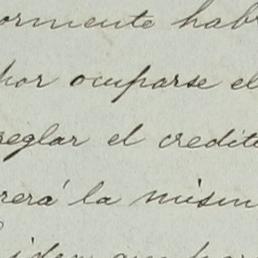 ormente hab
por ocuparse el
reglar el credit
rerá la mism
iden